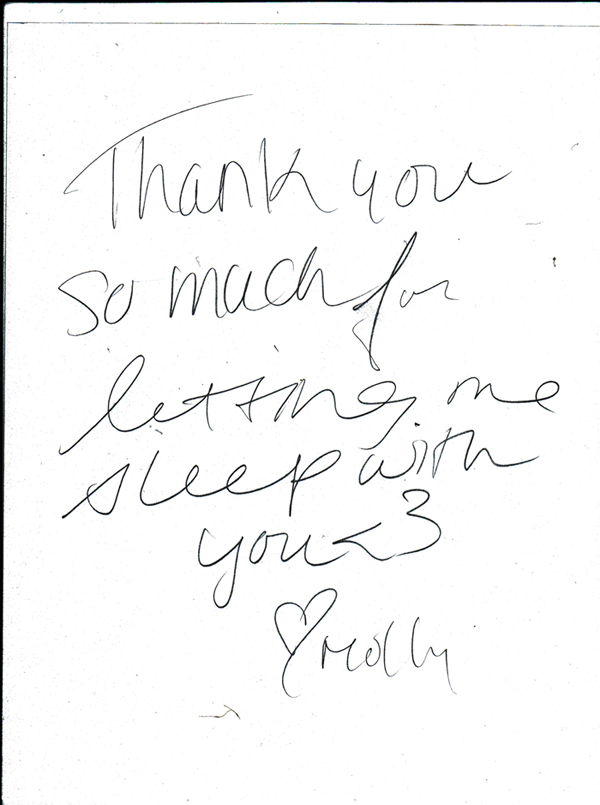 Thank you
so much for
letting me
sleep with
you <3
♡ Molly